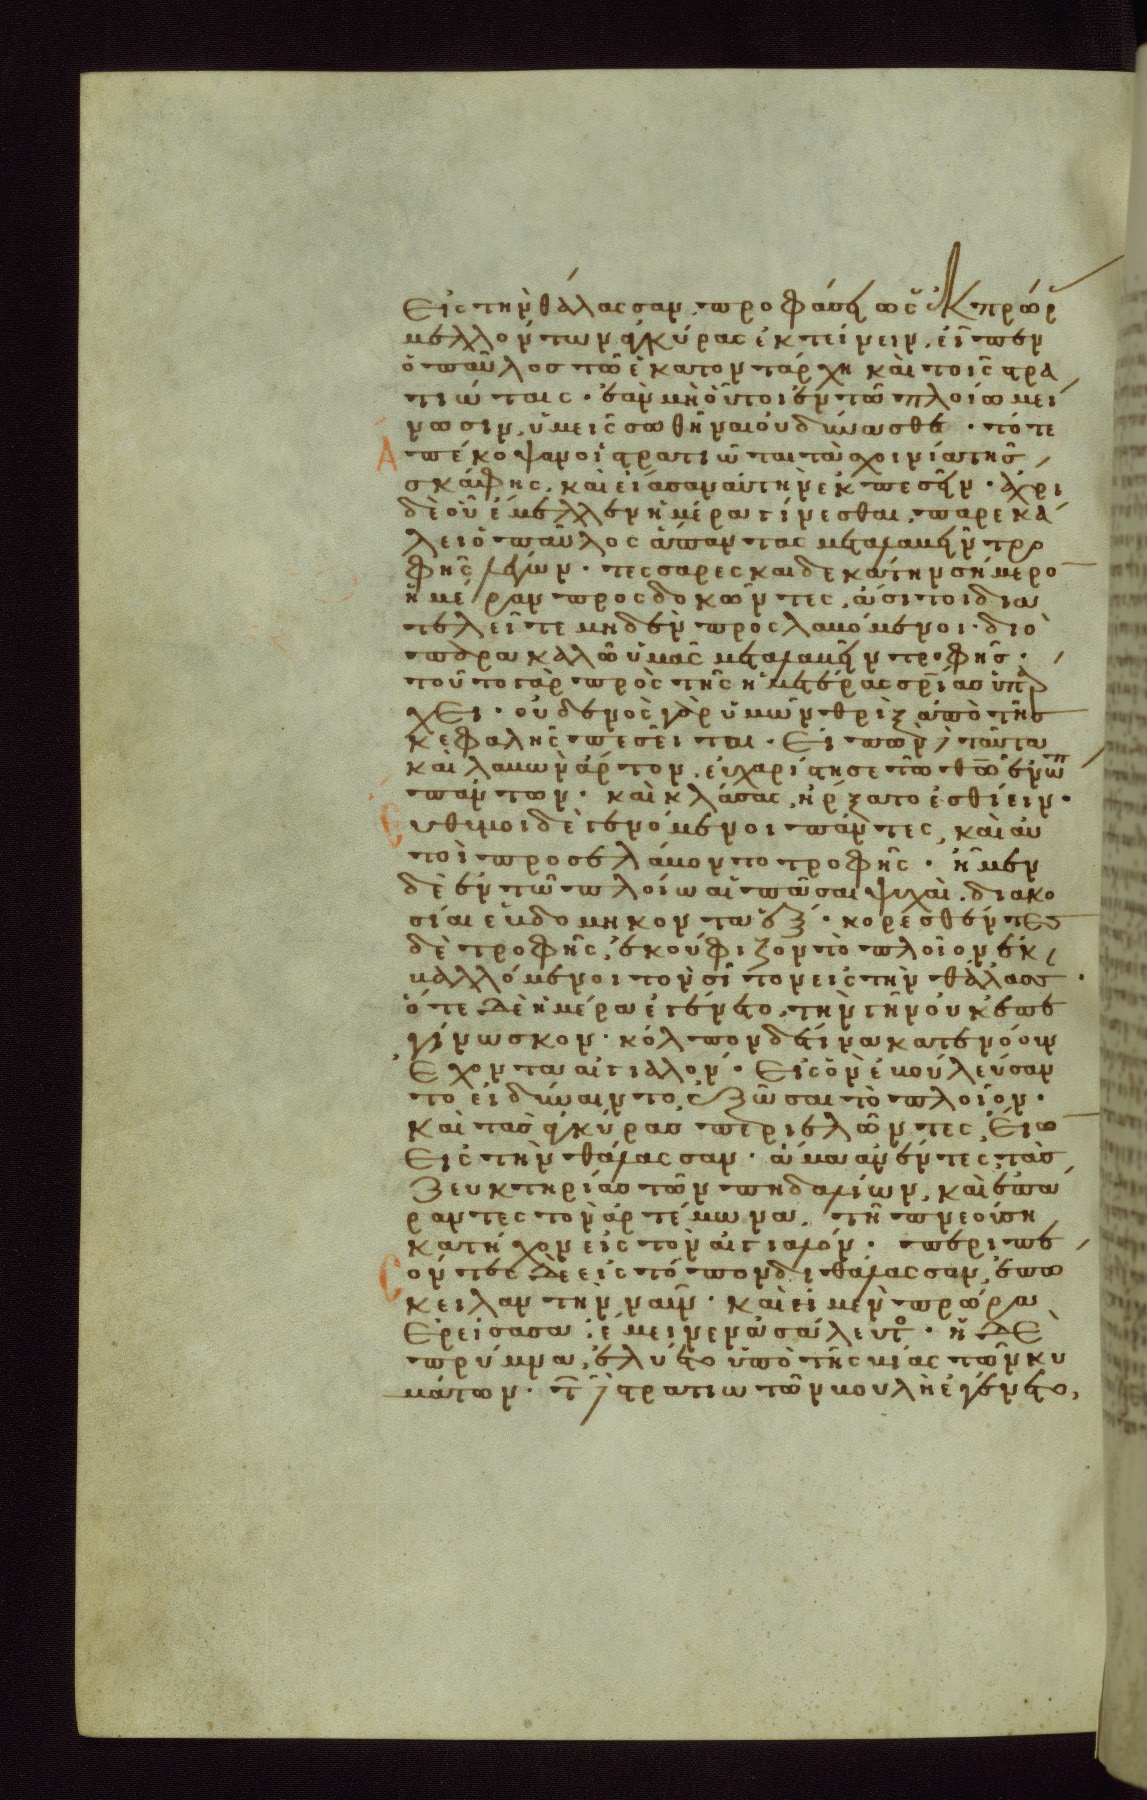 εἰς τὴν θάλασσαν. προφάσει ὡς ἐκ πρώρ
μελλόντων ἀγκύρας ἐκτείνειν. εἶπεν
ὁ παῦλος τῶ ἑκατοντάρχη καὶ τοῖς στρα
τιώταις · ἐὰν μὴ οὗτοι ἐν τῶ πλοίω μεί
νωσιν, ὑμεῖς σωθῆναι οὐ δύνασθε · τότε
ἀπέκοψαν οἱ στρατιῶται τὰ σχοινία τῆς
σκάφης, καὶ εἴασαν αὐτὴν ἐκπεσεῖν · ἄχρι
δὲ οὗ ἔμελλεν ἡμέρα γίνεσθαι, παρεκά
λει ὁ παῦλος ἅπαντας μεταλαβεῖν τρο
φῆς λέγων · τεσσαρεσκαιδεκάτην σήμερο
ἡμέραν προσδοκῶντες, ἄσιτοι δια
τελεῖτε μηδὲν προσλαβόμενοι · διὸ
παρακαλῶ ὑμᾶς μεταλαβεῖν τροφῆς ·
τοῦτο γὰρ πρὸς τῆς ἡμετέρας σρίας ὑπάρ
χει · οὐδενὸς γὰρ ὑμῶν θρὶξ ἀπὸ τῆς
κεφαλῆς πεσεῖται · εἰπὼν δὲ ταῦτα
καὶ λαβὼν ἄρτον, εὐχαρίστησε τῶ θῶ ἐνώπ
πάντων · καὶ κλάσας, ἤρξατο ἐσθίειν ·
εὔθυμοι δὲ γενόμενοι πάντες, καὶ αὐ
τοὶ προσελάβοντο τροφῆς · ἦμεν
δὲ ἐν τῶ πλοίω αἱ πᾶσαι ψυχαὶ, διακό
σιαι ἑβδομηκονταέξ · κορεσθέντες
δὲ τροφῆς, ἐκούφιζον τὸ πλοῖον ἐκ
βαλλόμενοι τὸν σῖτον εἰς τὴν θάλασσ ·
ὅτε δὲ ἡμέρα ἐγένετο, τὴν γῆν οὐκ ἐπε
γίνωσκον · κόλπον δέ τινα κατενόουν
ἔχοντα αἰγιαλόν · εἰς ὃν ἐβουλεύσαν
το εἰ δύναιντο, ἐξῶσαι τὸ πλοῖον ·
καὶ τὰς ἀγκύρας περιελόντες, εἴων
εἰς τὴν θάλασσαν · ἅμα ἀνέντες τὰς
ζευκτηρίας τῶν πηδαλίων, καὶ ἐπά
ραντες τὸν ἀρτέμωνα, τῆ πνεούση
κατῆχον εἰς τὸν αἰγιαλόν · περιπε
σόντες δὲ εἰς τόπον διθάλασσαν, ἐπώ
κειλαν τὴν ναῦν · καὶ εἱ μὲν πρώρα
ἐρείσασα, ἔμεινεν ἀσάλευτο · ἡ δὲ
πρύμνα, ἐλύετο ὑπὸ τῆς βίας τῶν κυ
μάτων · τῶν δὲ στρατιωτῶν βουλὴ ἐγένετο,